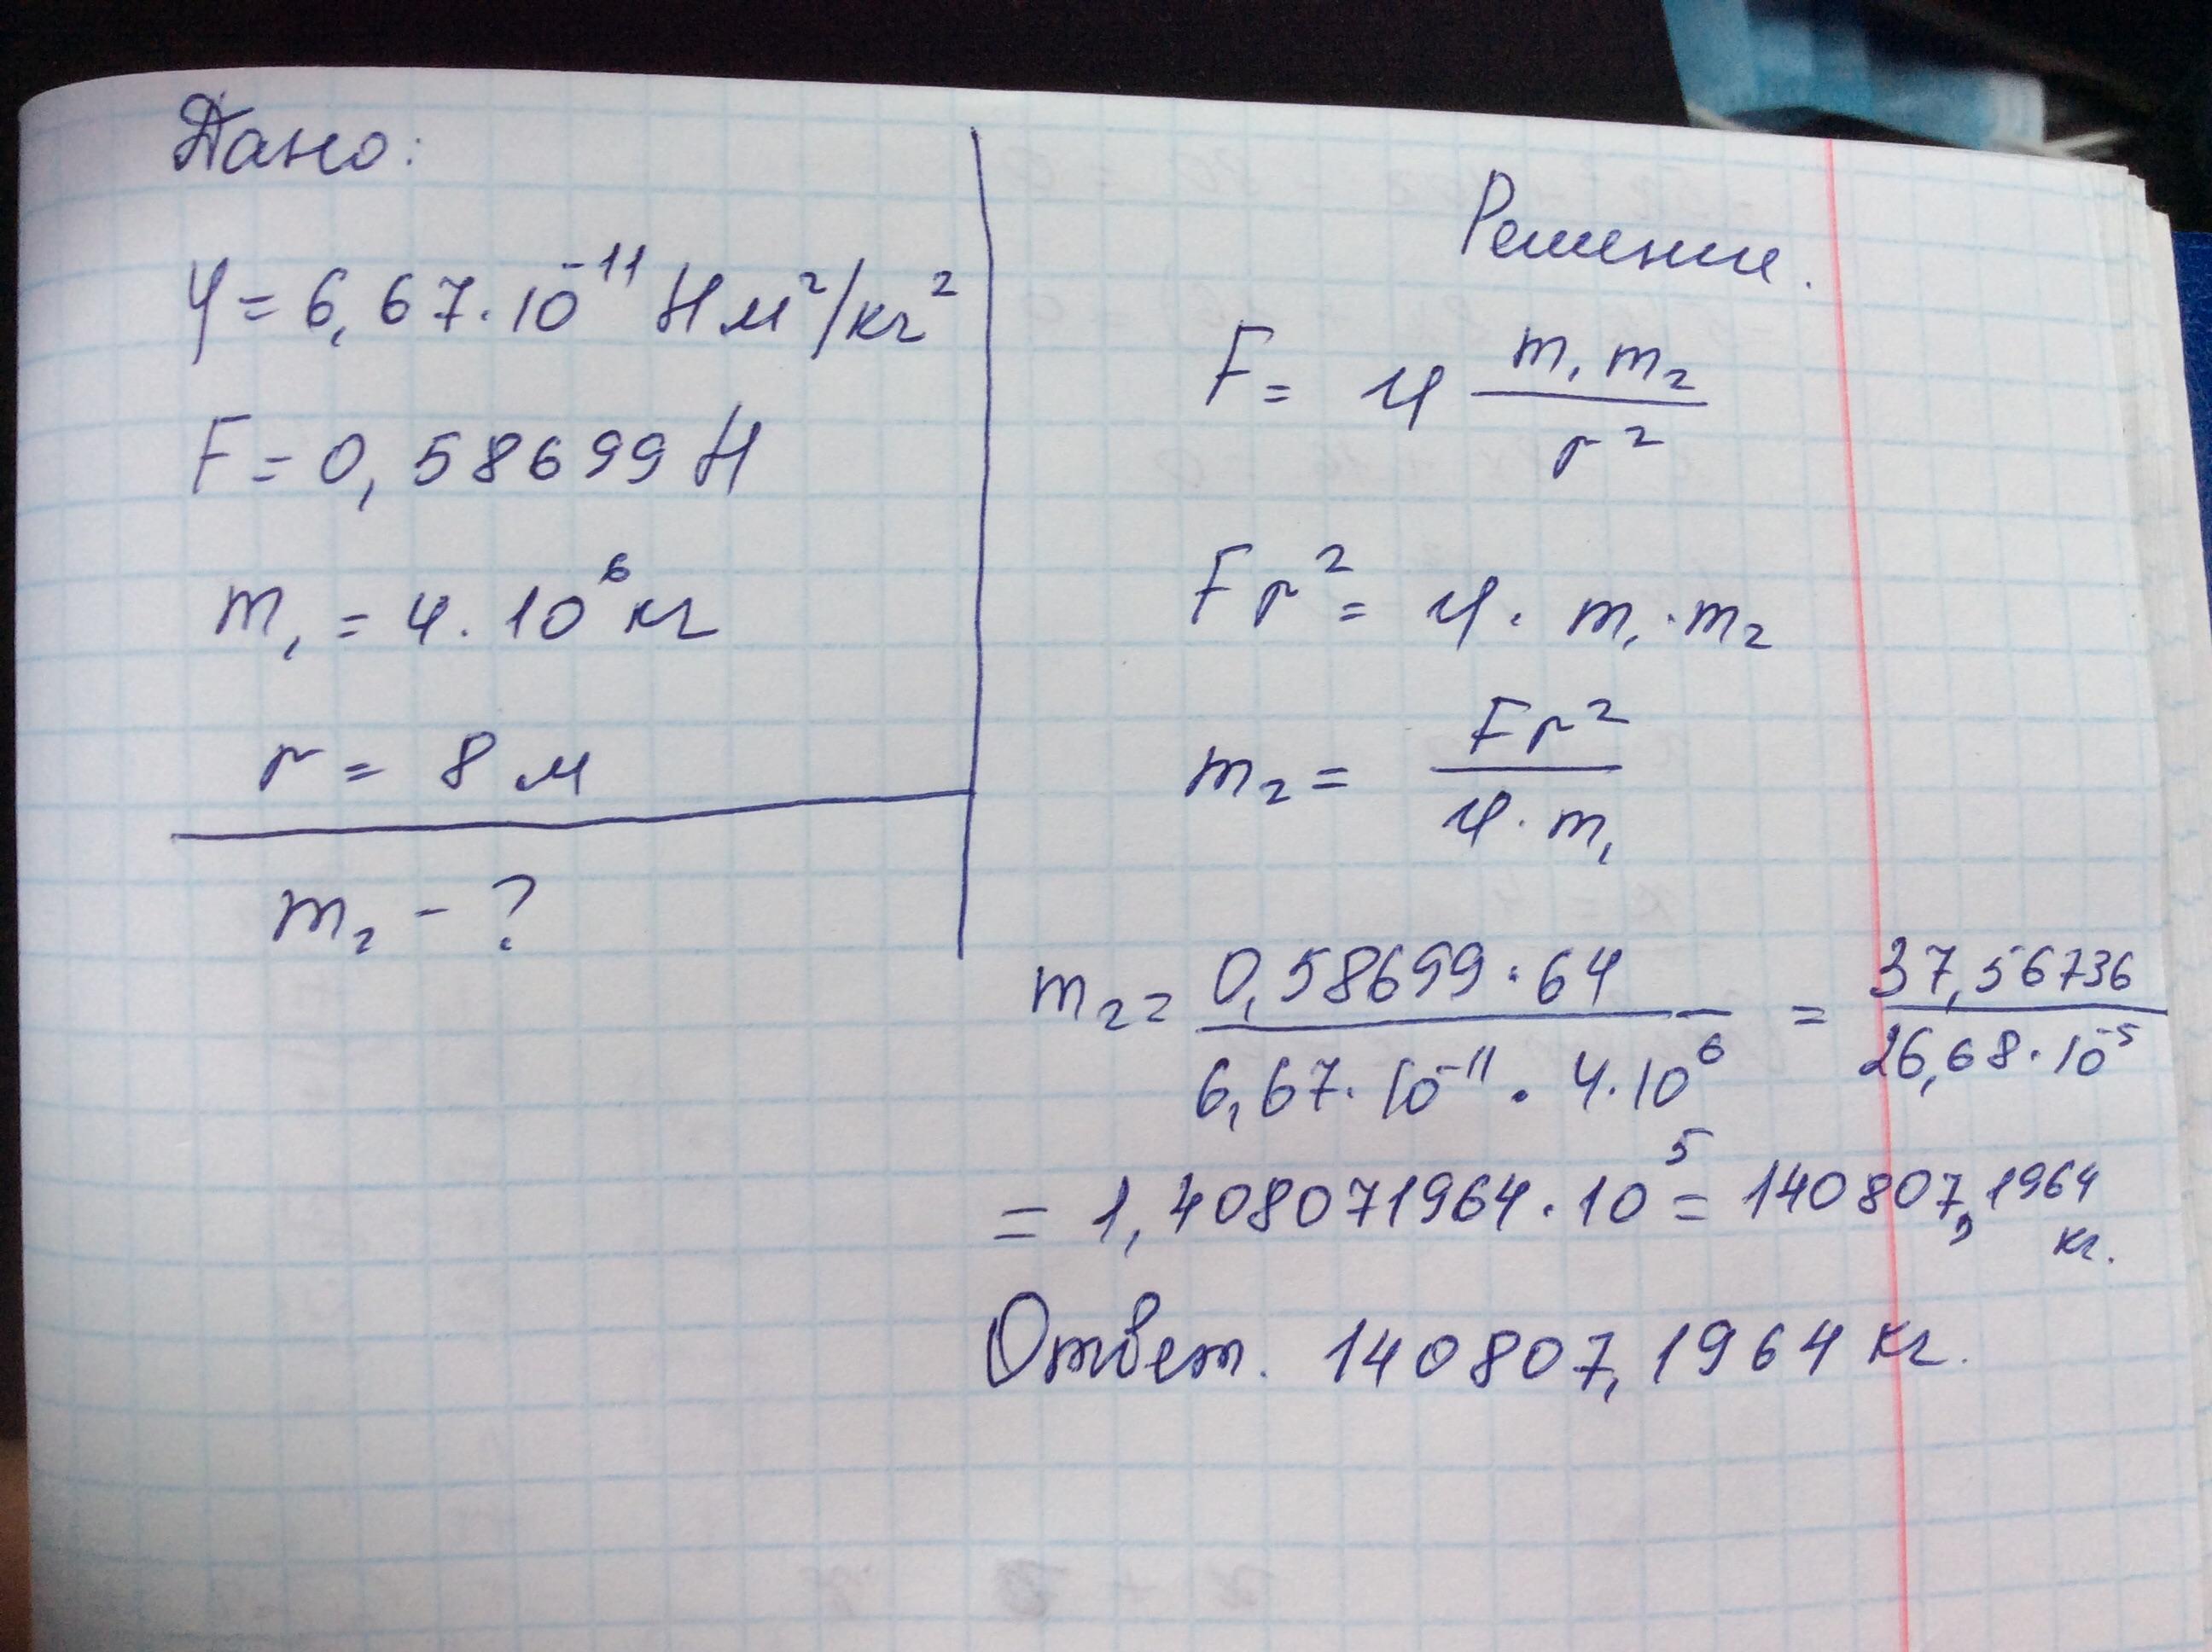 Дано:
γ = 6,67·10⁻¹¹ Н м²/кг²
F = 0,58699 Н
m₁ = 4·10⁶ кг
r = 8 м
m₂ - ?
Решение.
F = γ m₁ m₂ / r²
F r² = γ · m₁ · m₂
m₂ = F r² / γ · m₁
m₂ = 0,58699 · 64 / 6,67·10⁻¹¹ · 4·10⁶ = 37,56736 / 26,68·10⁻⁵
= 1,408071964·10⁵ = 140807,1964 кг.
Ответ. 140807,1964 кг.